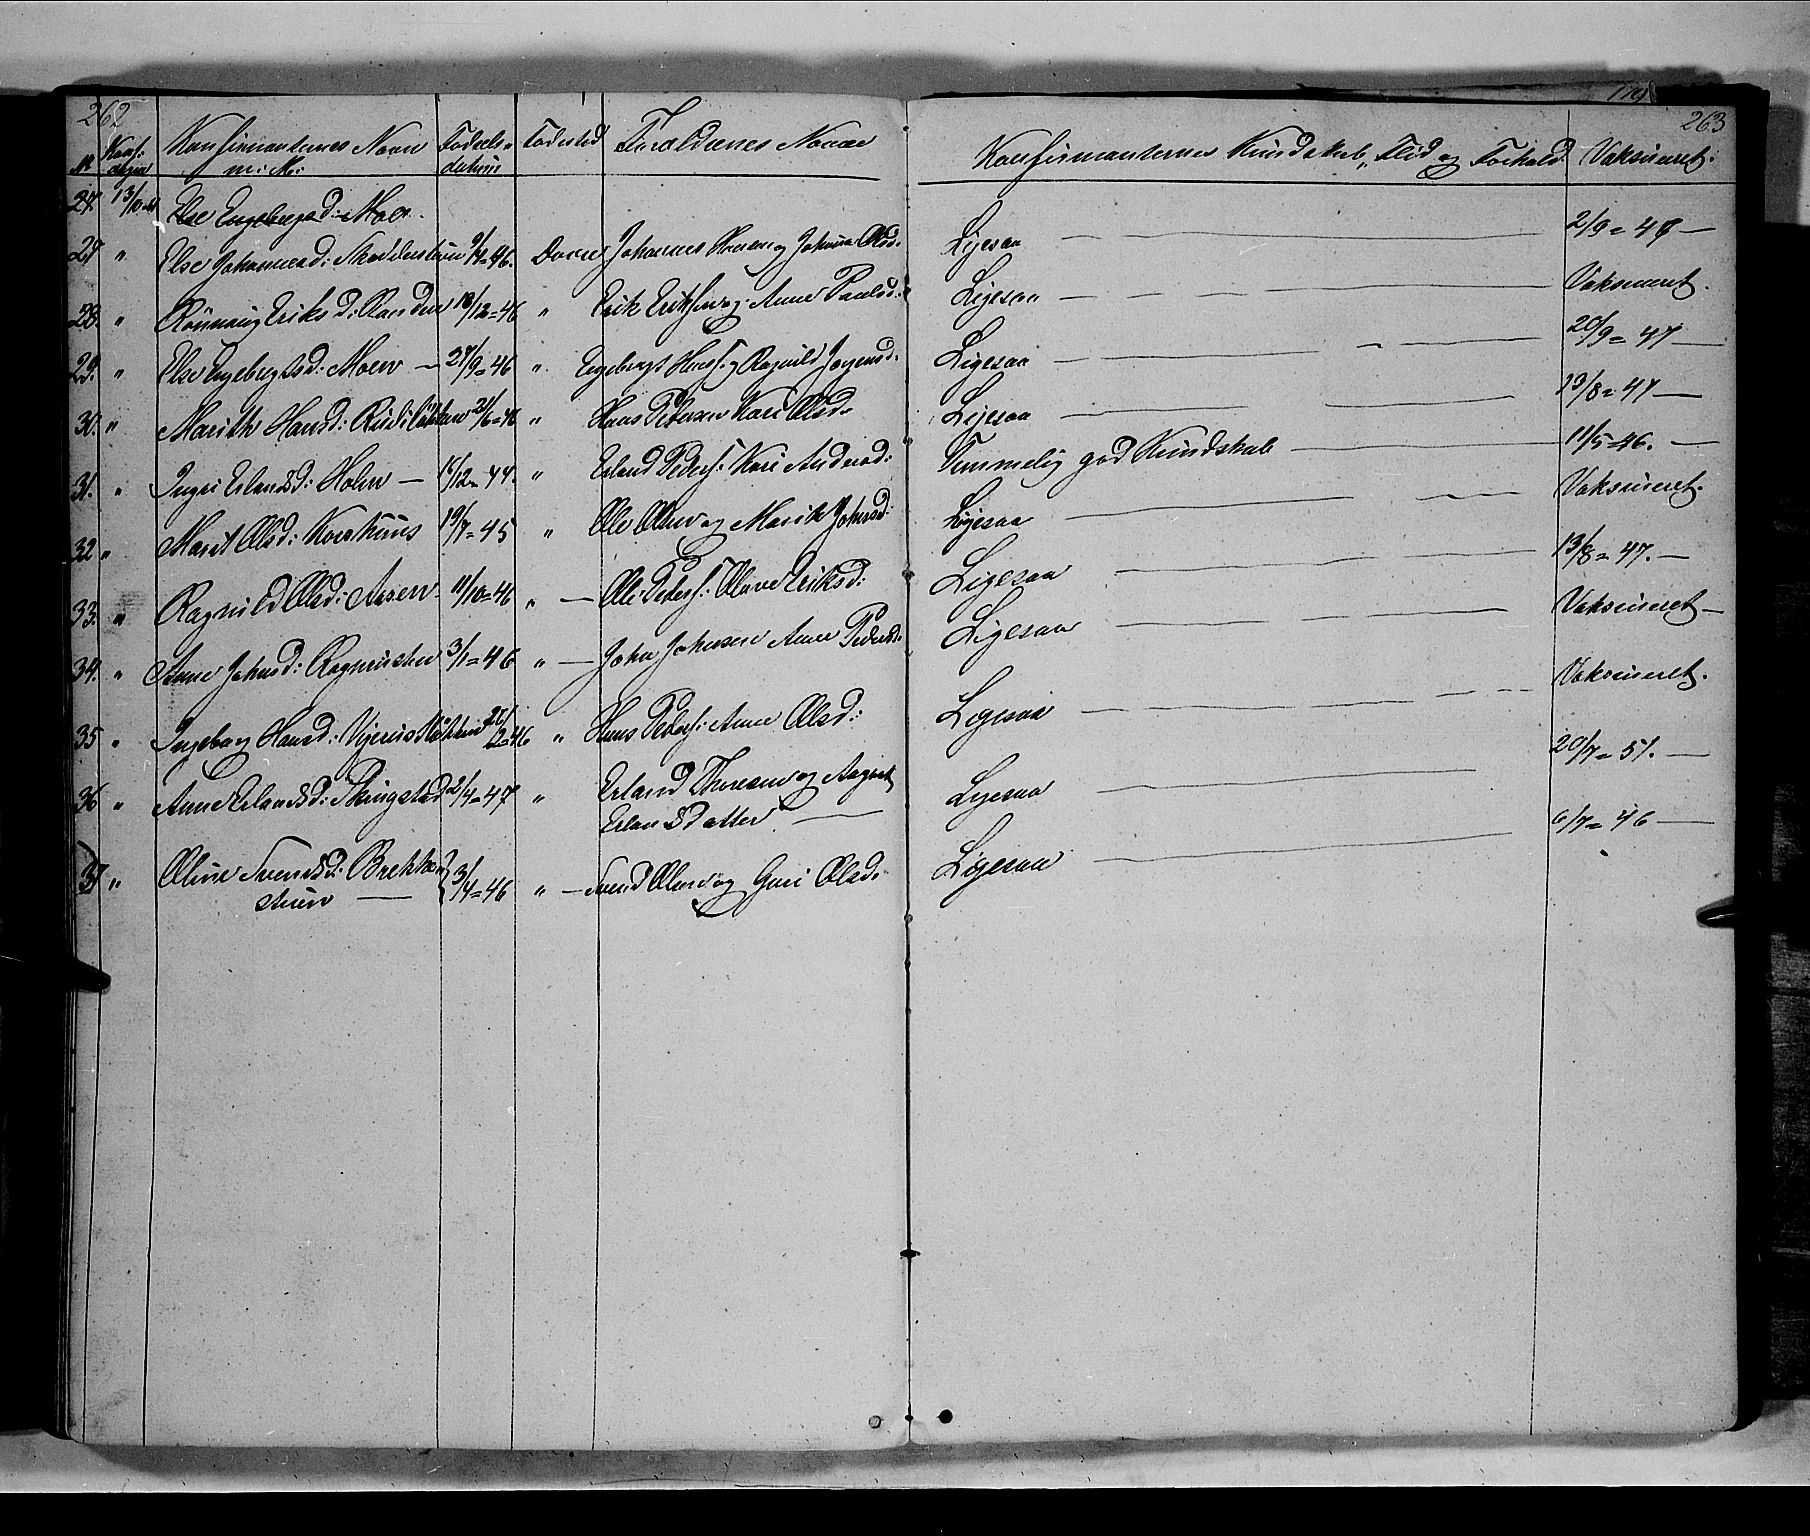 262
No Konf: dagen Konfirmanternes Navn m: M: Fødsels= datum Fødested Forældrenes Navne
27. 13/10 61 Else Engebregtsd: Moen.
27 " Else Johannesd: 9/4=46. Dovre Johannes Hansen og Johanna Olsd.
28. " Rönnaug Eriks D: Randen 18/12=46 " Erik Eriksen og Anne Paulsd:
29. " Else Engebregtsd: Moen — 27/9=46 " Engebregt Hans f: og Ragnild Joensd.
30. " Marith Hansd: 21/6=46 " Hans Pedersen Kari Olsd.
31. " Ingri Erlandsd: Holen — 16/12=44. " Erland Peders: Kari Andersd:
32 " Marit Olsd: Korshuus 19/7=45 " Ole Olsen og Marith Johnsd:
33. " Ragnild Olsd: Aasen. 11/10=46 " — Ole Peders: Olave Eriksd:
34. " Anne Johnsd: 3/1=46 " — John Johnsen Anne Pedersd:
35 " Ingeborg Hansd: =46 " Hans Peders: Anne Olsd:
36 " Anne Erlandsd: Skingstad 21/4=47 " Erland Thoresen og Aagot
Erlandsdatter —
37 " Oline Svendsd: Brekken 3/4=46 " — Svend Olsen og Guri Olsd.
stuen —
263
Konfirmanternes Kundskab, Flid og Forhold. Vaksineret.
Ligesaa — 2/9=48 —
Ligesaa — Vaksineret.
Ligesaa — 20/9=47 —
Ligesaa — 13/8=47 —
Temmelig god Kundskab — 11/5=46. —
Ligesaa — Vaksineret.
Ligesaa — 13/8=47. —
Ligesaa — Vaksineret —
Ligesaa — Vaksineret.
Ligesaa — 20/7=51. —
Ligesaa — 6/7=46 —